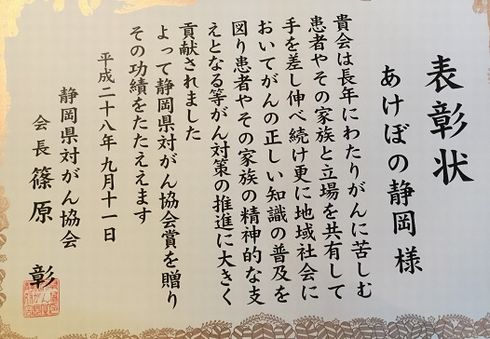 表彰状
あけぼの静岡様
貴会は長年にわたりがんに苦しむ
患者やその家族と立場を共有して
手を差し伸べ続け更に地域社会に
おいてがんの正しい知識の普及を
図り患者やその家族の精神的な支
えとなる等がん対策の推進に大きく
貢献されました
よって静岡県対がん協会賞を贈り
その功績をたたえます
平成二十八年九月十一日
静岡県対がん協会
会長 篠原 彰